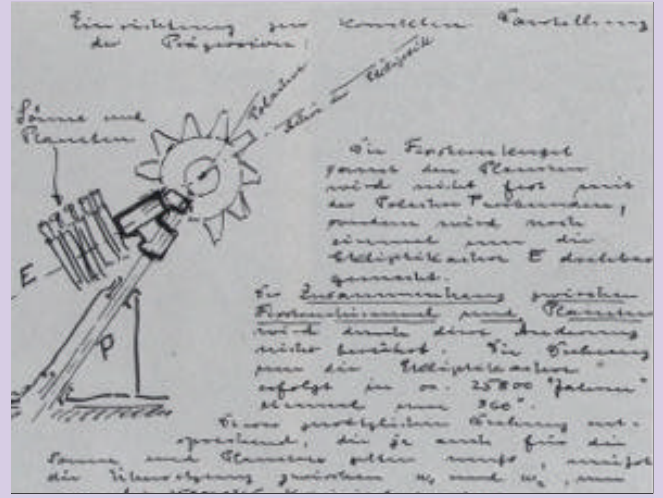 Einrichtung zur korrekten Darstellung
der Präzession:
Polachse
Achse der Ekliptik
Sonne und
Planeten
Die Fixsternkugel
samt den Planeten
wird nicht fest mit
der Polachse P verbunden,
sondern wird noch
einmal um die
Ekliptikachse E drehbar
gemacht.
E
Der Zusammenhang zwischen
Fixsternhimmel und Planeten
wird durch diese Änderung
P
nicht berührt. Die Drehung
um die Ekliptikachse
erfolgt in ca. 25800 "Jahren"
einmal um 360°.
Dieser zusätzlichen Drehung ent-
sprechend, die ja auch für die
Sonne und Planeten gelten muß, muß
die Übersetzung zwischen w₁ und w₂ um